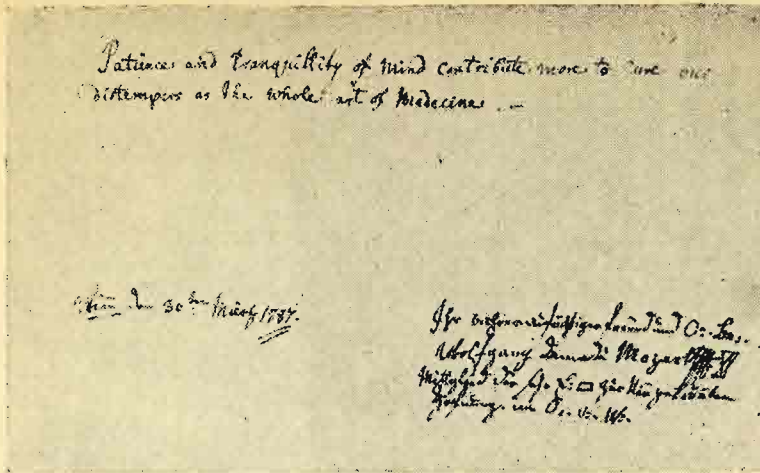 Patience and tranquillity of mind contribute more to cure our
distempers as the whole art of Medecine. —
Wien den 30ten März 1787.
Ihr wahrer aufrichtiger freund und O:. Br:.
Wolfgang Amadè Mozart
Mitglied der zur Neugekrönten
Hofnung im O:. v:. W:.